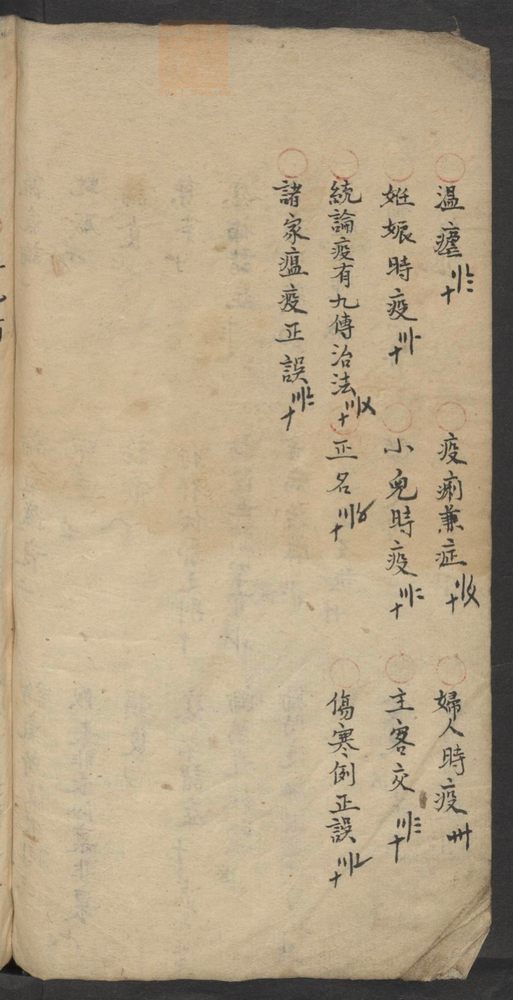 溫瘧〣〨十 疫痢兼症〣〤十 婦人時疫卅
妊娠時疫〣〡十 小兒時疫〣〢十 主客交〣〣十
統論疫有九傳治法〣〤十 正名〣〥十 傷寒例正誤〣〦十
諸家瘟疫正誤